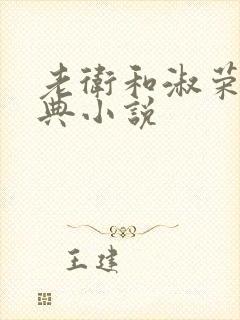 老衛和淑荣
典小说
王建